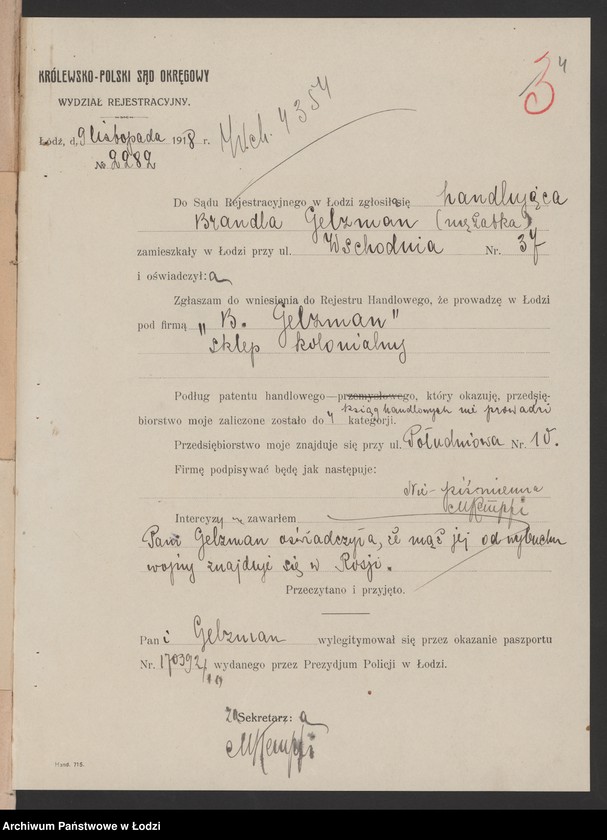 4
3
KRÓLEWSKO-POLSKI SĄD OKRĘGOWY
WYDZIAŁ REJESTRACYJNY.
Łódź, d. 9 listopada 1918 r.
№ 2282
4354
Do Sądu Rejestracyjnego w Łodzi zgłosiłasię handlująca
Brandla Gelzman (mężatka)
zamieszkały w Łodzi przy ul. Wschodnia Nr. 37
i oświadczył:a
Zgłaszam do wniesienia do Rejestru Handlowego, że prowadzę w Łodzi
pod firmą „B. Gelzman"
sklep kolonialny
Podług patentu handlowego—przemysłowego, który okazuję, przedsię-
ksiąg handlowych nie prowadzi
biorstwo moje zaliczone zostało do 4 kategorji.
Przedsiębiorstwo moje znajduje się przy ul. Południowa Nr. 10.
Firmę podpisywać będę jak następuje:
Nie-piśmienna
MKempfi
Intercyzy nie zawarłem
Pani Gelzman oświadczyła, że mąż jej od wybuchu
wojny znajduje się w Rosji.
Przeczytano i przyjęto.
Pani Gelzman wylegitymował się przez okazanie paszportu
Nr. 170392/19 wydanego przez Prezydjum Policji w Łodzi.
za Sekretarz: a
MKempfi
Hand. 715.
Archiwum Państwowe w Łodzi